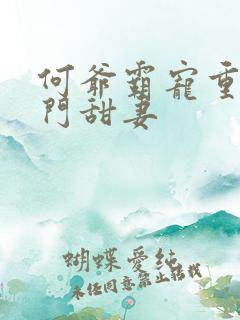 何爺霸寵重
門甜妻
蝴蝶愛純
未經同意禁止轉載